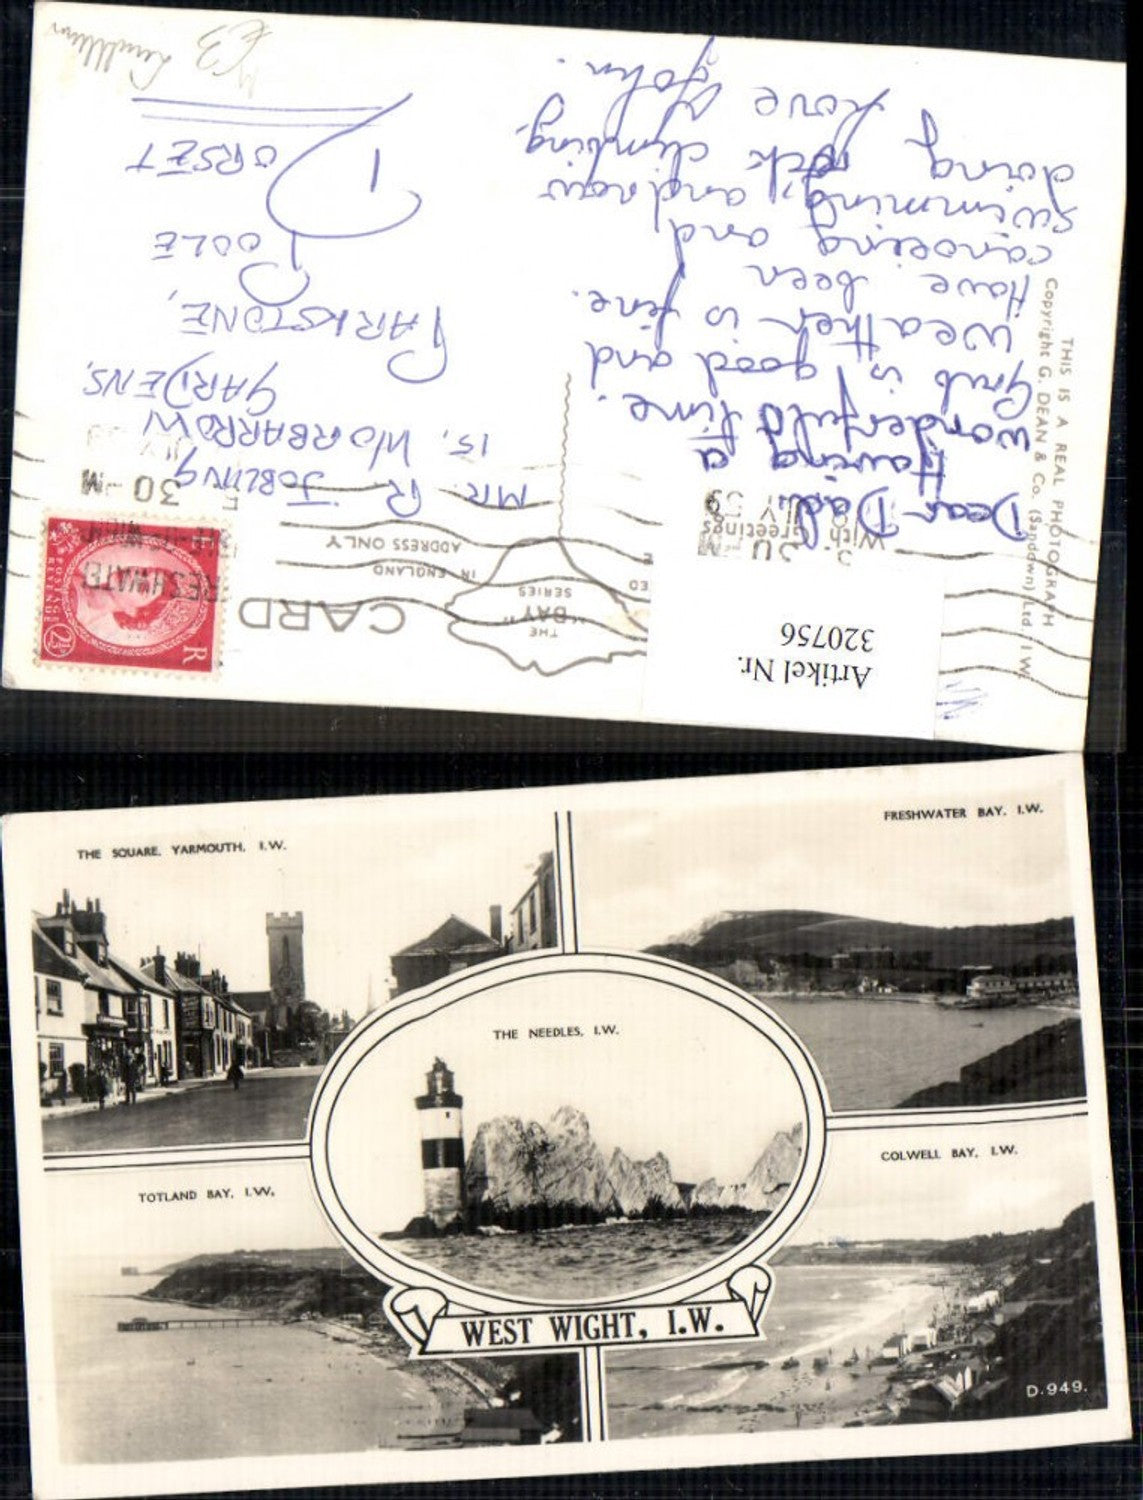 THIS IS A REAL PHOTOGRAPH
Copyright G. DEAN & Co. (Sandown) Ltd. I.W.
Artikel Nr.
320756
THE
"DAY"
SERIES
CARD
IN ENGLAND
ADDRESS ONLY
With
Greetings
JY 59
FRESHWATER
30-M
Dear Dad
Having a
wonderfuld time.
Grub is good and
weather is fine.
Have been
canoeing and,
swimming, and now
doing rock climbing.
Love
John.
MR. R. JOBLING,
15, WORBARROW
GARDENS,
PARKSTONE,
POOLE
DORSET
£3
THE SQUARE. YARMOUTH, I.W.
FRESHWATER BAY. I.W.
THE NEEDLES, I.W.
TOTLAND BAY, I.W.
COLWELL BAY, I.W.
WEST WIGHT, I.W.
D.949.